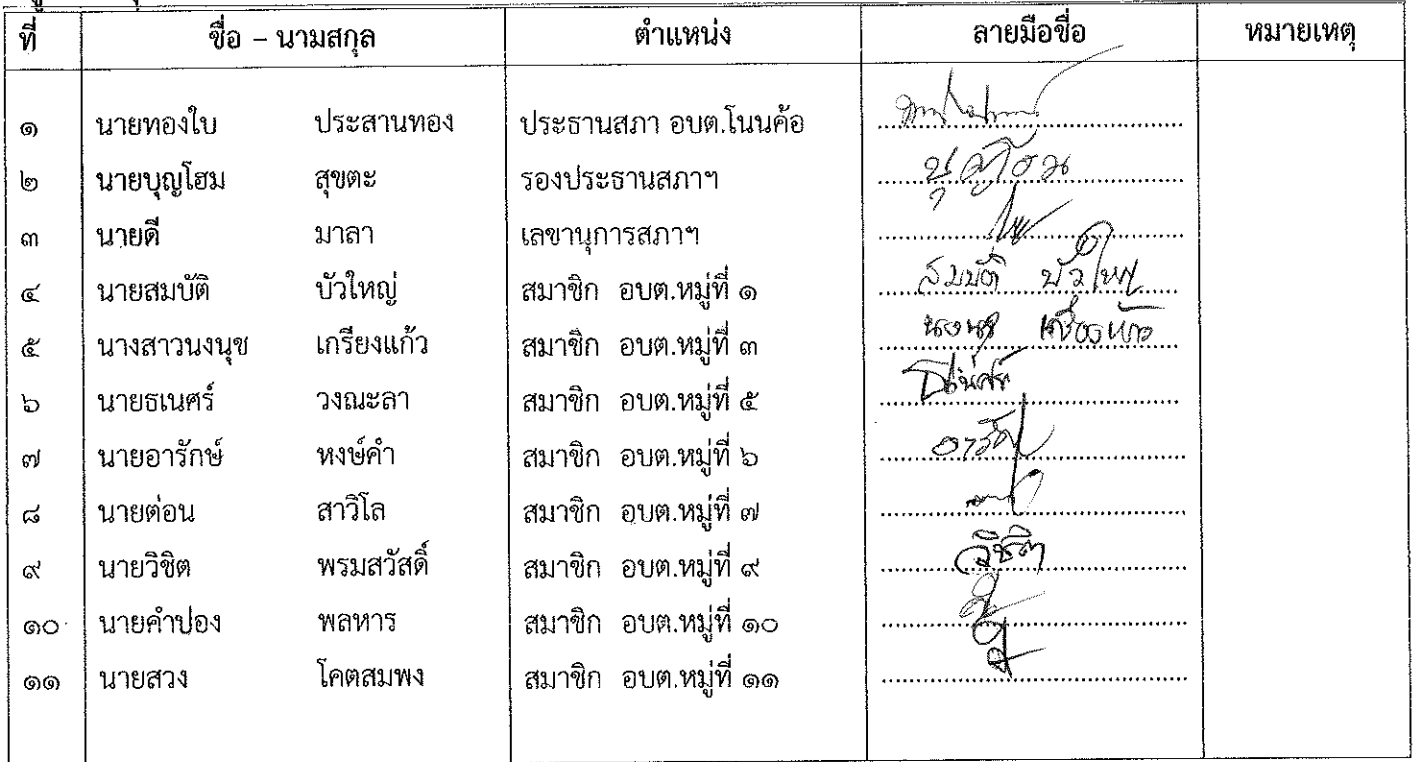 ที่ ชื่อ – นามสกุล ตำแหน่ง ลายมือชื่อ หมายเหตุ
๑ นายทองใบ ประสานทอง ประธานสภา อบต.โนนค้อ
๒ นายบุญโฮม สุขตะ รองประธานสภาฯ บุญโฮม
๓ นายดี มาลา เลขานุการสภาฯ
๔ นายสมบัติ บัวใหญ่ สมาชิก อบต.หมู่ที่ ๑ สมบัติ บัวใหญ่
๕ นางสาวนงนุช เกรียงแก้ว สมาชิก อบต.หมู่ที่ ๓ นงนุช
๖ นายธเนศร์ วงณะลา สมาชิก อบต.หมู่ที่ ๕
๗ นายอารักษ์ หงษ์คำ สมาชิก อบต.หมู่ที่ ๖
๘ นายต่อน สาวิโล สมาชิก อบต.หมู่ที่ ๗
๙ นายวิชิต พรมสวัสดิ์ สมาชิก อบต.หมู่ที่ ๙ วิชิต
๑๐ นายคำปอง พลหาร สมาชิก อบต.หมู่ที่ ๑๐
๑๑ นายสวง โคตสมพง สมาชิก อบต.หมู่ที่ ๑๑